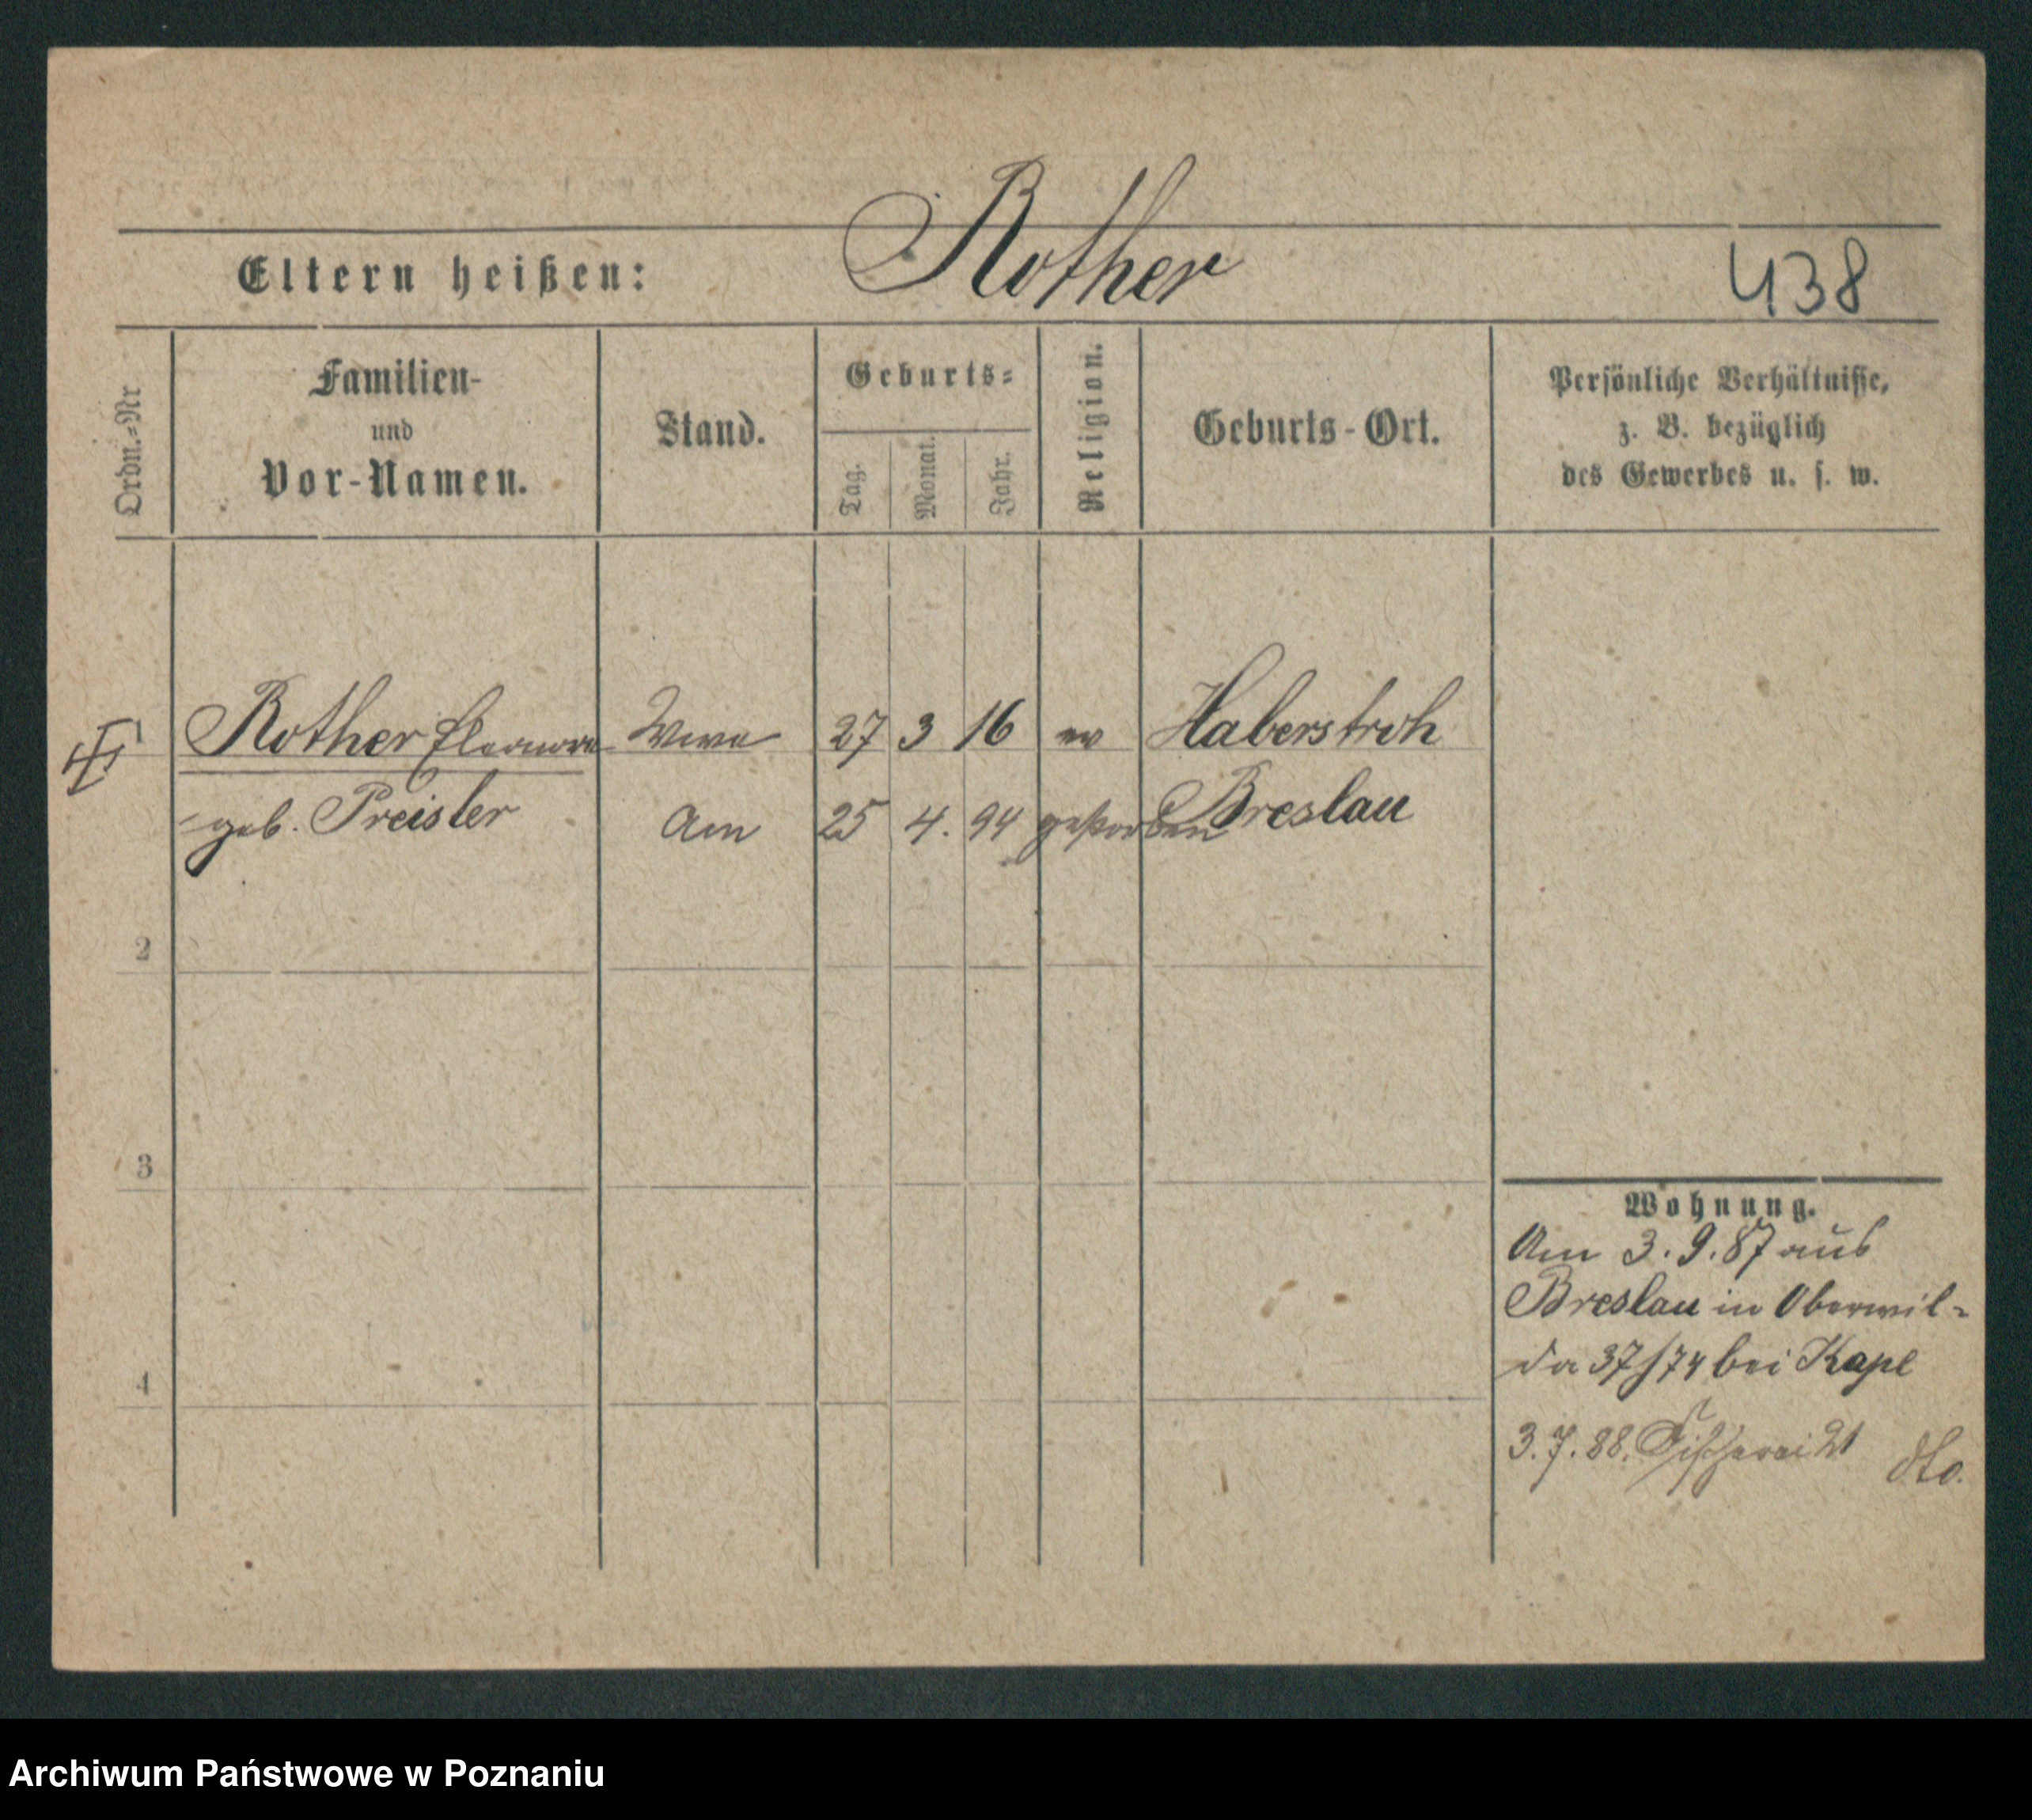 Rother
Eltern heißen:
438
Ordn.-Nr
Familien-
und
Vor-Namen.
Stand.
Geburts-
Tag.
Monat.
Jahr.
Religion.
Geburts-Ort.
Persönliche Verhältnisse,
z. B. bezüglich
des Gewerbes u. s. w.
1 Rother Eleonore Wwe 27 3 16 ev Haberstroh
geb. Preisler Am 25 4. 94 gestorben Breslau
2
3
4
Wohnung.
Am 3. 9. 87 aus
Breslau in Oberwil-
da 37/74 bei Kape
3. 7. 88. Fischerei 21 dto.
Archiwum Państwowe w Poznaniu